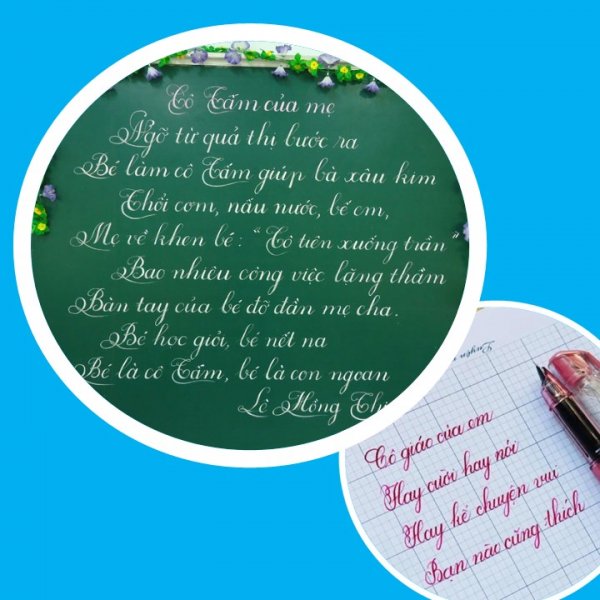 Cô Tấm của mẹ
Ngỡ từ quả thị bước ra
Bé làm cô Tấm giúp bà xâu kim
Thổi cơm, nấu nước, bế em,
Mẹ về khen bé: "Cô tiên xuống trần"
Bao nhiêu công việc lặng thầm
Bàn tay của bé đỡ đần mẹ cha.
Bé học giỏi, bé nết na
Bé là cô Tấm, bé là con ngoan
Lê Hồng
Luyện
Cô giáo của em
Hay cười hay nói
Hay kể chuyện vui
Bạn nào cũng thích